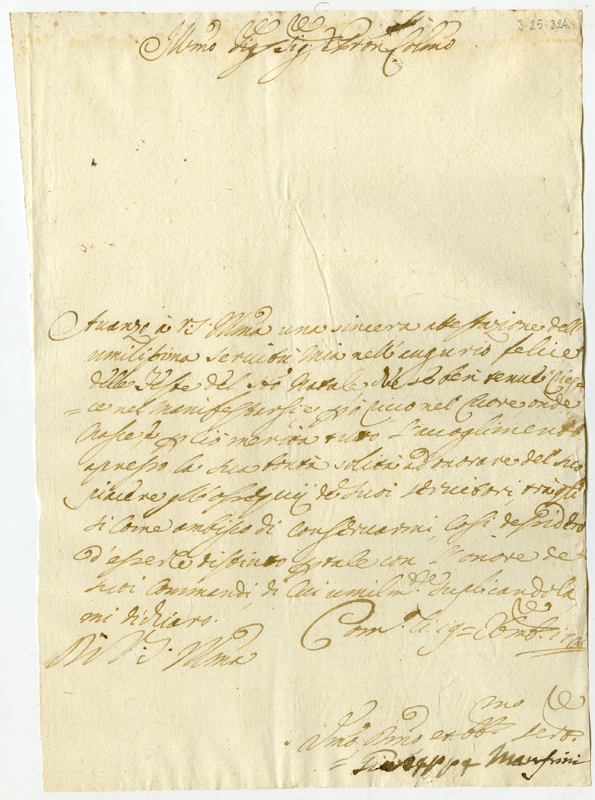 3-25-324
Illmo Sig. Sig. Pron Colmo
Avanzo à V. S. Illma una sincera attestazione dell
umilissima servitù mia nell'augurio felice
delle Feste del Sto Natale, che se ben tenue
ce nel manifestarsi è vivo nel Cuore onde
nasce, merita tutto l'accoglimento
apresso la Sua bontà solita ad onorare del suo
piacere gl'ossequij de suoi servitori tra quali
si come ambisco di conservarmi, così desidero
d'essere distinto tale con l'onore de
suoi Commandi, di cui umilmte suplicandola
mi dichiaro.
Di V. S. Illma
mo
Dmo et obb. Sere
Giuseppe Manfrini